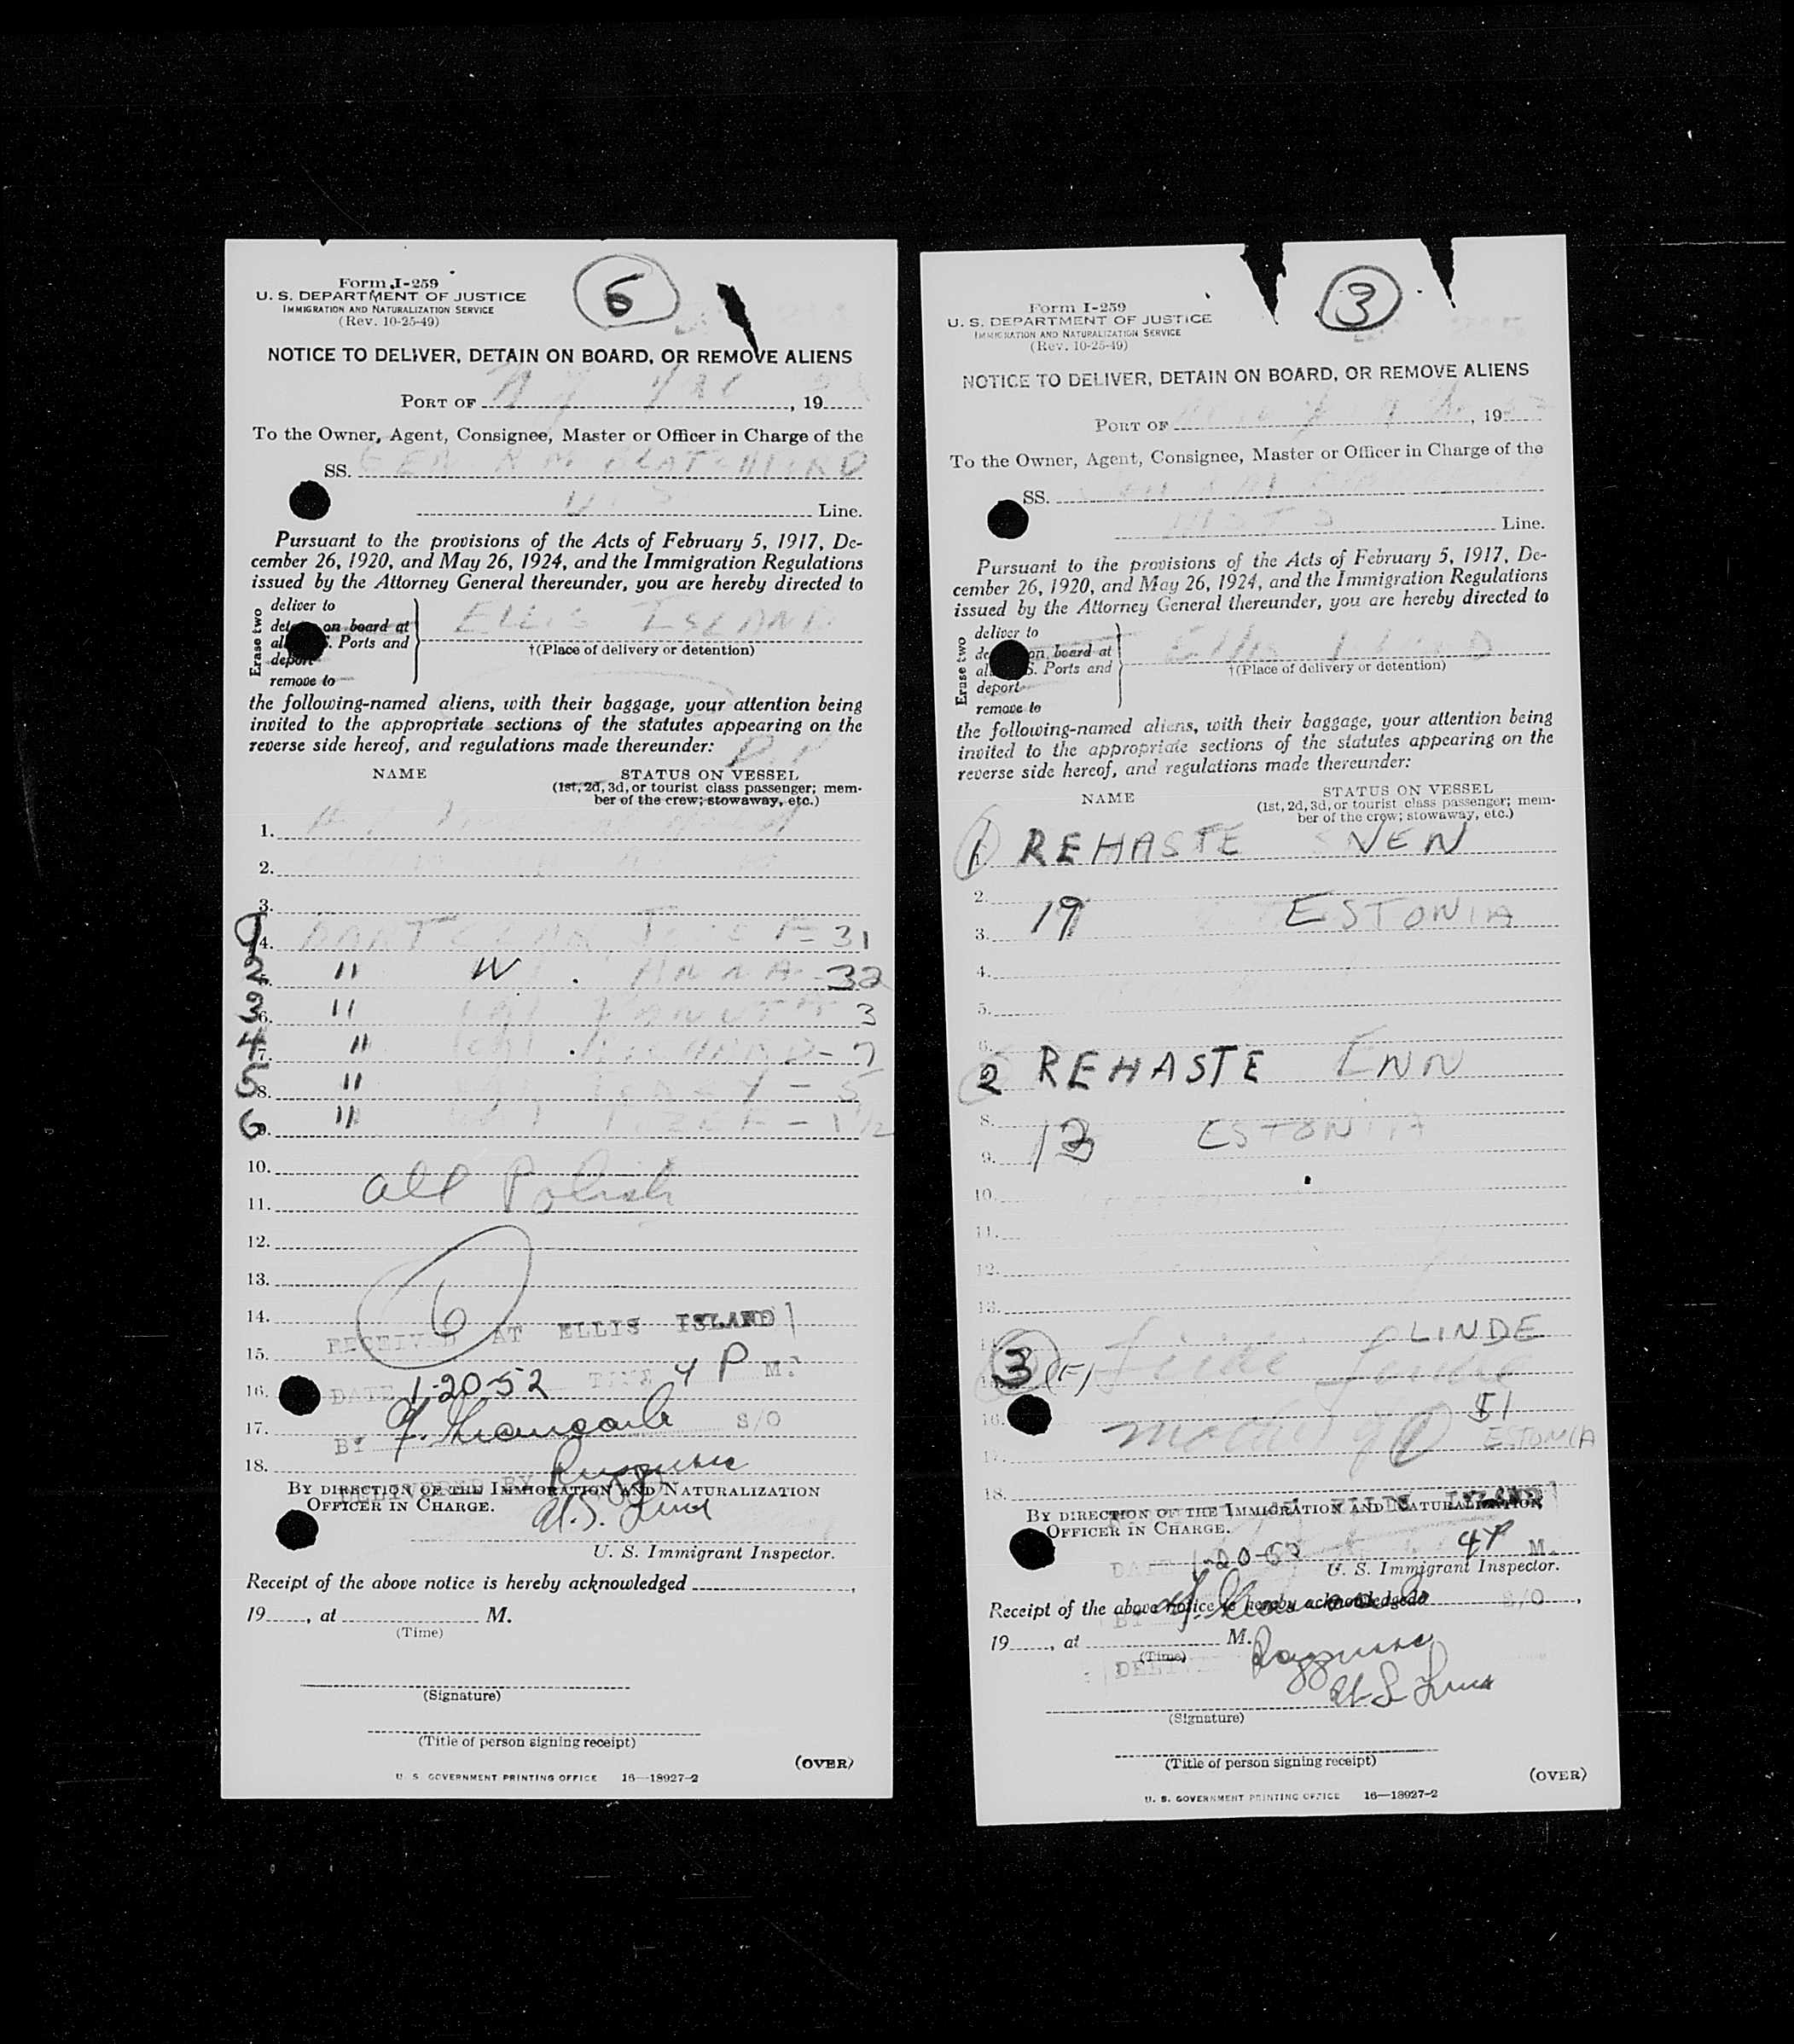 Form I-259
6
U. S. DEPARTMENT OF JUSTICE
IMMIGRATION AND NATURALIZATION SERVICE
(Rev. 10-25-49)
NOTICE TO DELIVER, DETAIN ON BOARD, OR REMOVE ALIENS
PORT OF N Y , 19
To the Owner, Agent, Consignee, Master or Officer in Charge of the
SS. GEN R M BLATCHFORD
U S Line.
Pursuant to the provisions of the Acts of February 5, 1917, De-
cember 26, 1920, and May 26, 1924, and the Immigration Regulations
issued by the Attorney General thereunder, you are hereby directed to
Erase two
deliver to
on board at
Ports and
deport
remove to
ELLIS ISLAND
†(Place of delivery or detention)
the following-named aliens, with their baggage, your attention being
invited to the appropriate sections of the statutes appearing on the
reverse side hereof, and regulations made thereunder:
D.P
NAME STATUS ON VESSEL
(1st, 2d, 3d, or tourist class passenger; mem-
ber of the crew; stowaway, etc.)
1.
2.
3.
1 4. 31
2 " W ANNA 32
3 6. " DANUTA 3
4 7. " 7
5 8. " 5
6 " JOZEF - 1 1/2
10.
all Polish
11.
12.
13.
14. 6
RECEIVED AT ELLIS ISLAND
15.
16. DATE 1-20-52 TIME 4 P M.
17. BY S/O
18.
DELIVERED BY
BY DIRECTION OF THE IMMIGRATION AND NATURALIZATION
OFFICER IN CHARGE.
U. S. Immigrant Inspector.
Receipt of the above notice is hereby acknowledged ,
19 , at M.
(Time)
(Signature)
(Title of person signing receipt)
(OVER)
U. S. GOVERNMENT PRINTING OFFICE 16—18927-2
Form I-259
3
U. S. DEPARTMENT OF JUSTICE
IMMIGRATION AND NATURALIZATION SERVICE
(Rev. 10-25-49)
NOTICE TO DELIVER, DETAIN ON BOARD, OR REMOVE ALIENS
PORT OF , 19
To the Owner, Agent, Consignee, Master or Officer in Charge of the
SS.
MSTS Line.
Pursuant to the provisions of the Acts of February 5, 1917, De-
cember 26, 1920, and May 26, 1924, and the Immigration Regulations
issued by the Attorney General thereunder, you are hereby directed to
Erase two
deliver to
on board at
S. Ports and
deport
remove to
Ellis Island
†(Place of delivery or detention)
the following-named aliens, with their baggage, your attention being
invited to the appropriate sections of the statutes appearing on the
reverse side hereof, and regulations made thereunder:
NAME STATUS ON VESSEL
(1st, 2d, 3d, or tourist class passenger; mem-
ber of the crew; stowaway, etc.)
1 REHASTE SVEN
2.
3. 19 ESTONIA
4.
5.
6.
2 REHASTE ENN
8.
9. 13 ESTONIA
10.
11.
12.
13.
14. LINDE
3 (F)
16. 51
17. ESTONIA
18.
ELLIS ISLAND
BY DIRECTION OF THE IMMIGRATION AND NATURALIZATION
OFFICER IN CHARGE.
DATE 1-20-52 4 P M.
U. S. Immigrant Inspector.
Receipt of the above notice is hereby acknowledged ,
BY S/O
19 , at M.
(Time)
(Signature)
(Title of person signing receipt)
(OVER)
U. S. GOVERNMENT PRINTING OFFICE 16—18927-2